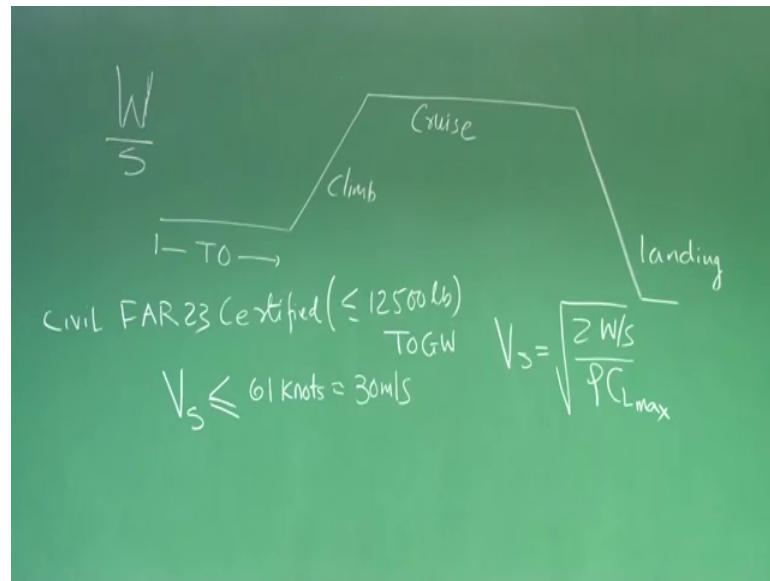 W
S
Cruise
Climb
|— TO —>
landing
Civil FAR 23 Certified (≤ 12500 lb)
TOGW
V_S ≤ 61 Knots = 30m/s
V_S = √(2 W/S / ρC_Lmax)